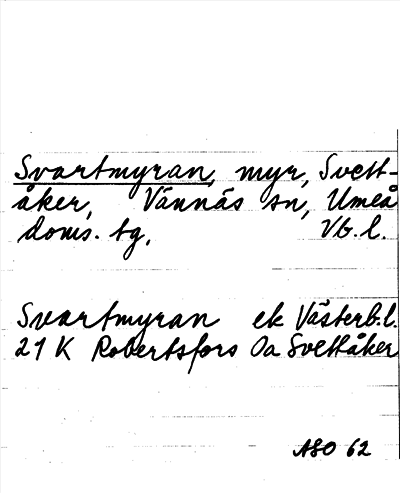 Svartmyran, myr, Svett-
åker, Vännäs sn, Umeå
doms. tg, Vb. l.
Svartmyran ek Västerb.l.
21 K Robertsfors Oa Svettåker
ASO 62